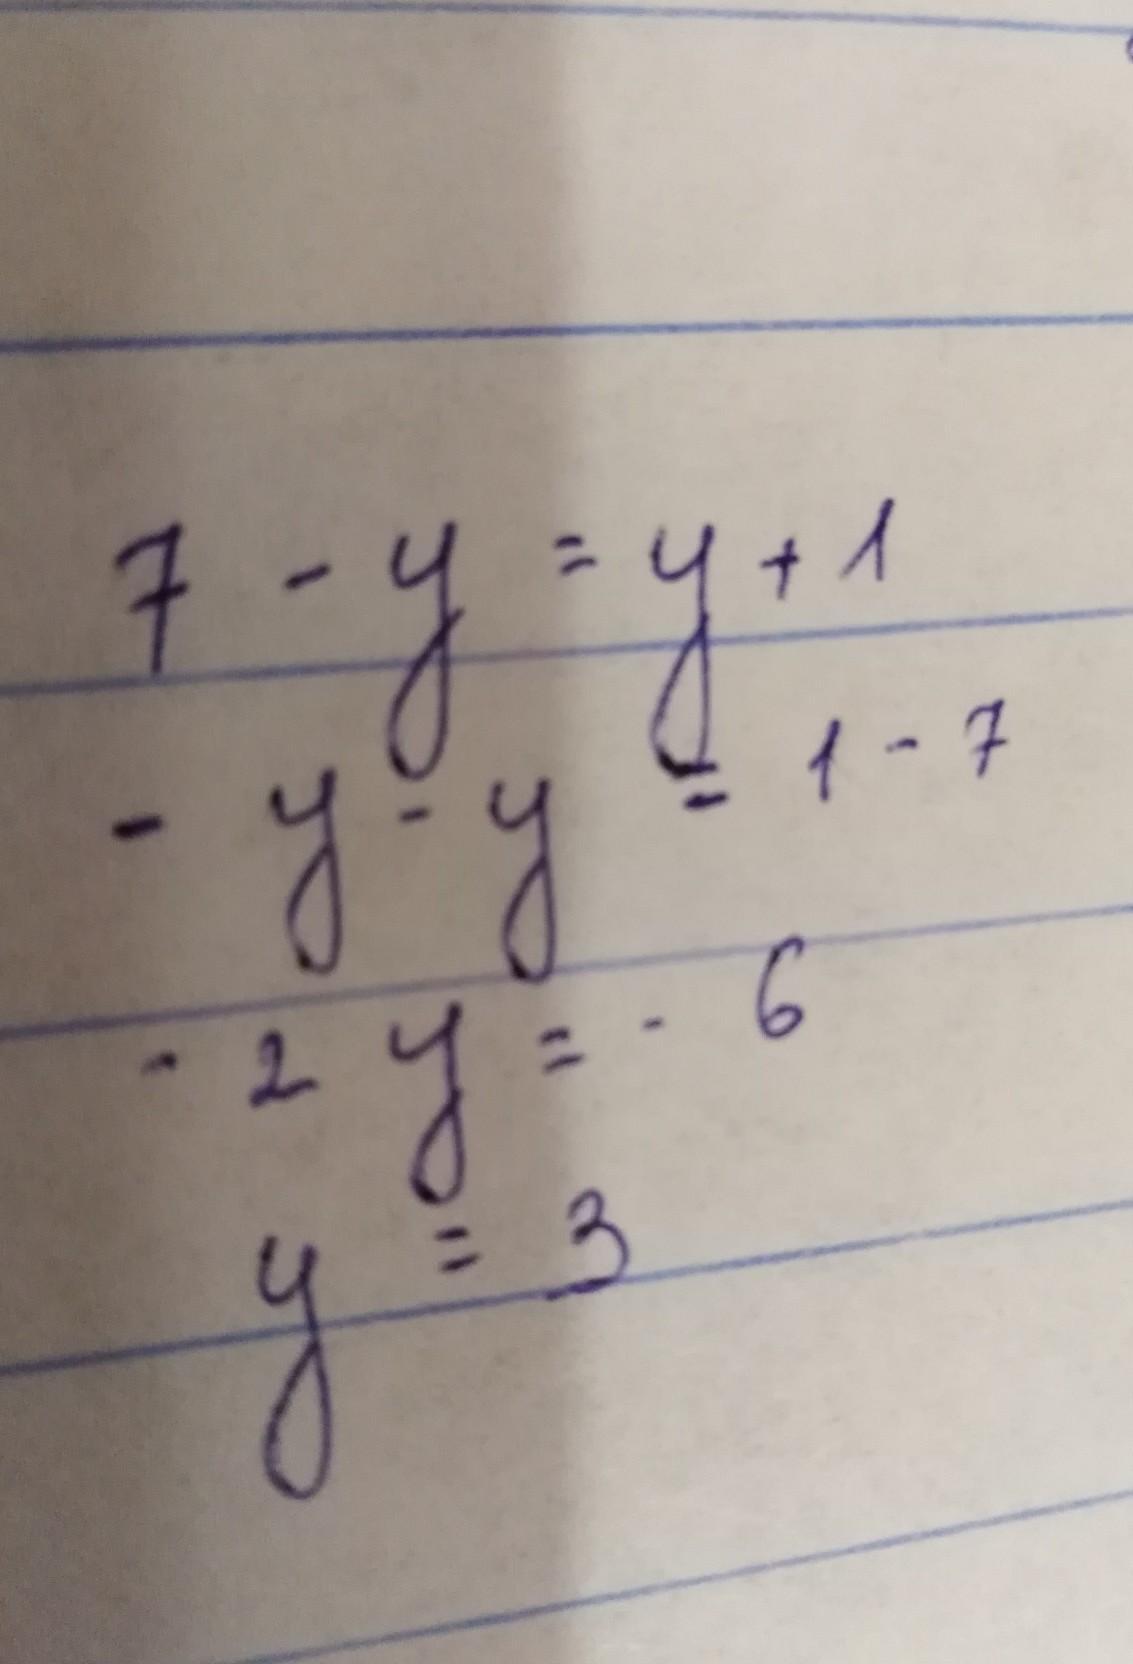 7 - y = y + 1
- y - y = 1 - 7
- 2 y = - 6
y = 3